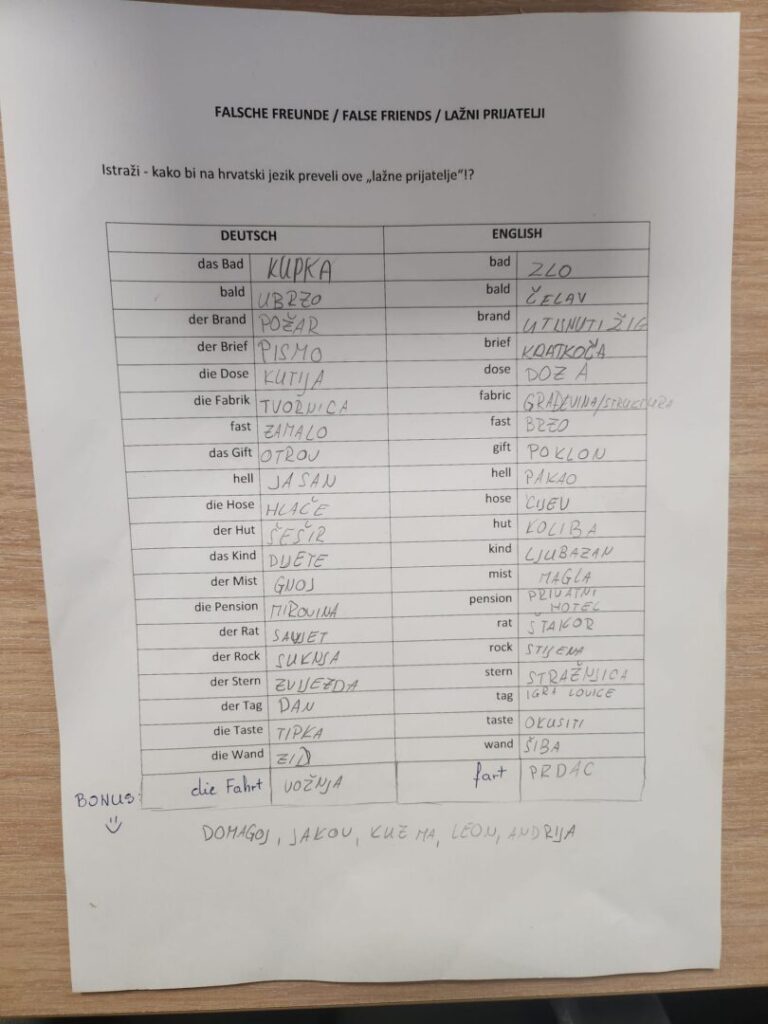 FALSCHE FREUNDE / FALSE FRIENDS / LAŽNI PRIJATELJI
Istraži - kako bi na hrvatski jezik preveli ove „lažne prijatelje"!?
DEUTSCH ENGLISH
das Bad KUPKA bad ZLO
bald UBRZO bald ČELAV
der Brand POŽAR brand UTISNUTI ŽIG
der Brief PISMO brief KRATKOĆA
die Dose KUTIJA dose DOZA
die Fabrik TVORNICA fabric GRAĐEVINA/STRUKTURA
fast ZAMALO fast BRZO
das Gift OTROV gift POKLON
hell JASAN hell PAKAO
die Hose HLAČE hose CIJEV
der Hut ŠEŠIR hut KOLIBA
das Kind DIJETE kind LJUBAZAN
der Mist GNOJ mist MAGLA
die Pension MIROVINA pension PRIVATNI HOTEL
der Rat SAVJET rat ŠTAKOR
der Rock SUKNJA rock STIJENA
der Stern ZVIJEZDA stern STRAŽNJICA
der Tag DAN tag IGRA LOVICE
die Taste TIPKA taste OKUSITI
die Wand ZID wand ŠIBA
BONUS: die Fahrt VOŽNJA fart PRDAC
DOMAGOJ, JAKOV, KUZMA, LEON, ANDRIJA